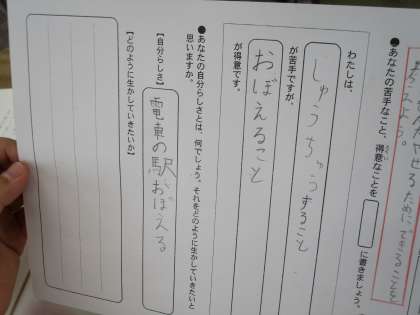 やせるためにできることを
●あなたの苦手なこと、得意なことを
に書きましょう。
わたしは、
しゅうちゅうすること
が苦手ですが、
おぼえること
が得意です。
●あなたの自分らしさとは、何でしょう。それをどのように生かしていきたいと
思いますか。
【自分らしさ】
電車の駅おぼえる
【どのように生かしていきたいか】